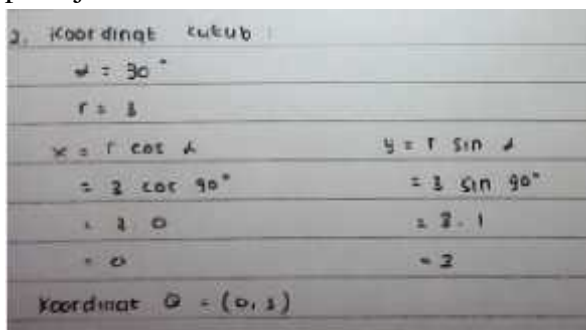 2. Koordinat kutub :
α =
r = 3
x = r cos α
= 3 cos 90°
= 3 . 0
= 0
y = r sin α
= 3 sin 90°
= 3 . 1
= 3
Koordinat Q = (0, 3)